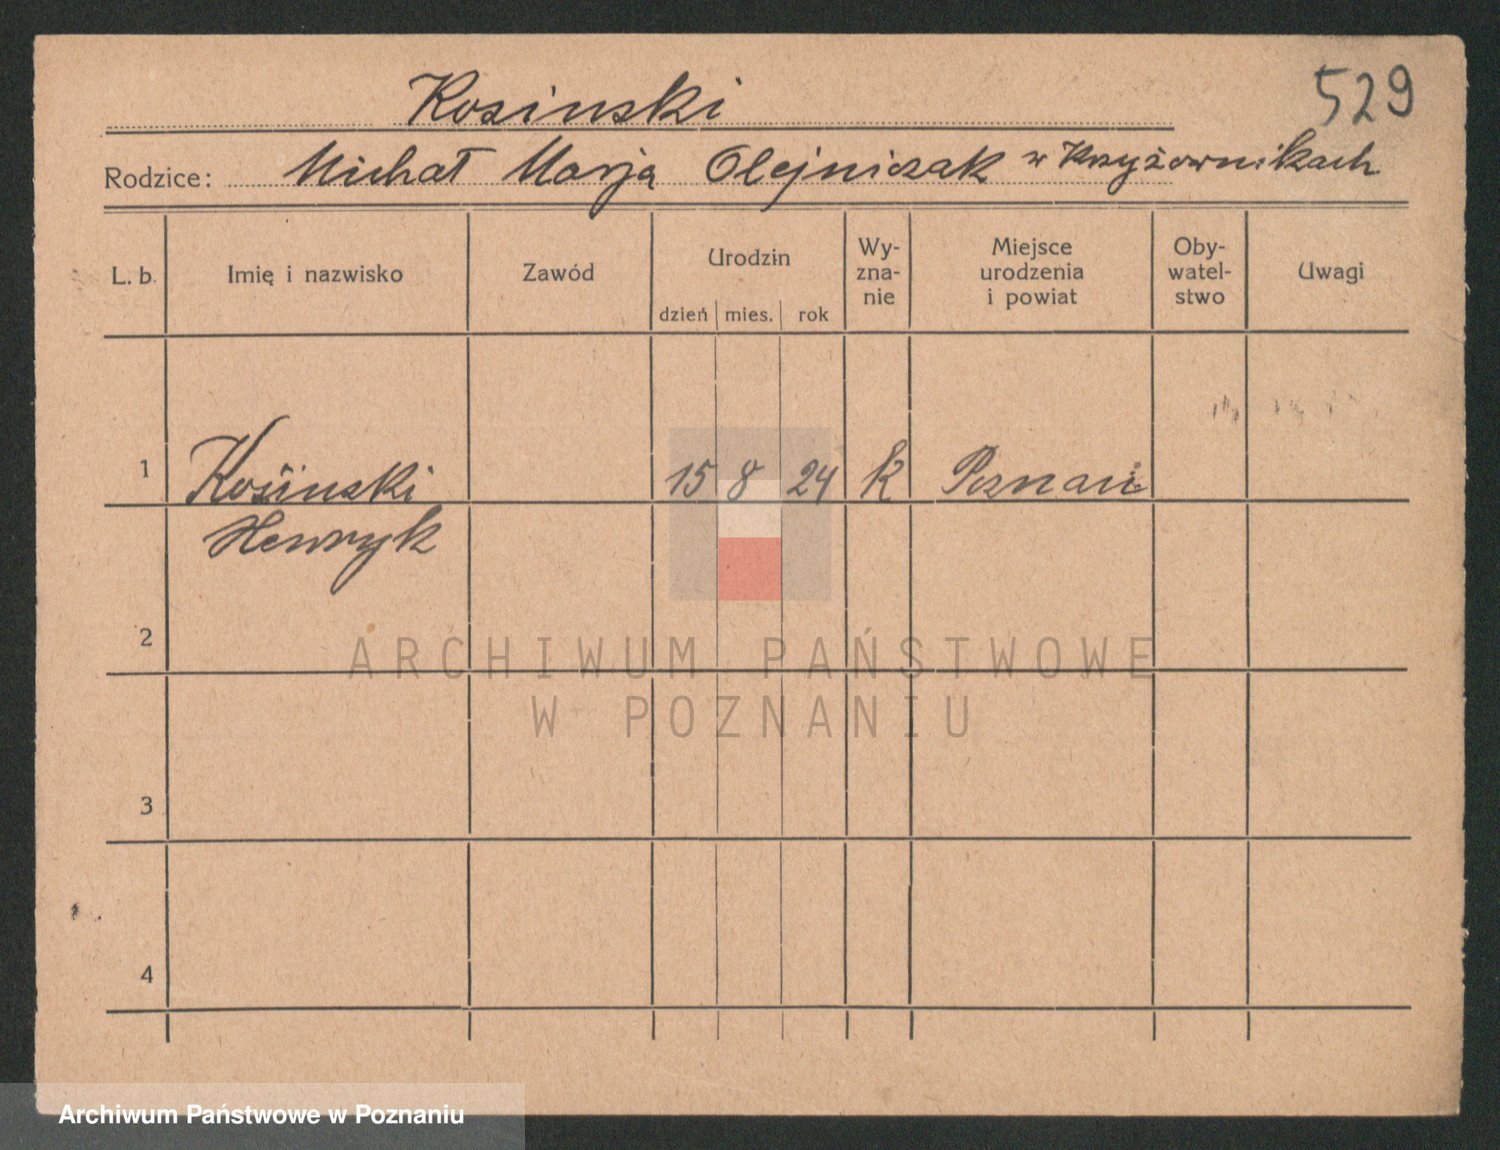 529
Kosinski
Rodzice: Michał Marja Olejniczak w Krzyżownikach
L. b. Imię i nazwisko Zawód Urodzin dzień mies. rok Wy-zna-nie Miejsce urodzenia i powiat Oby-watel-stwo Uwagi
1 Kosiński 15 8 24 k Poznań
Henryk
2
ARCHIWUM PAŃSTWOWE
W POZNANIU
3
4
Archiwum Państwowe w Poznaniu